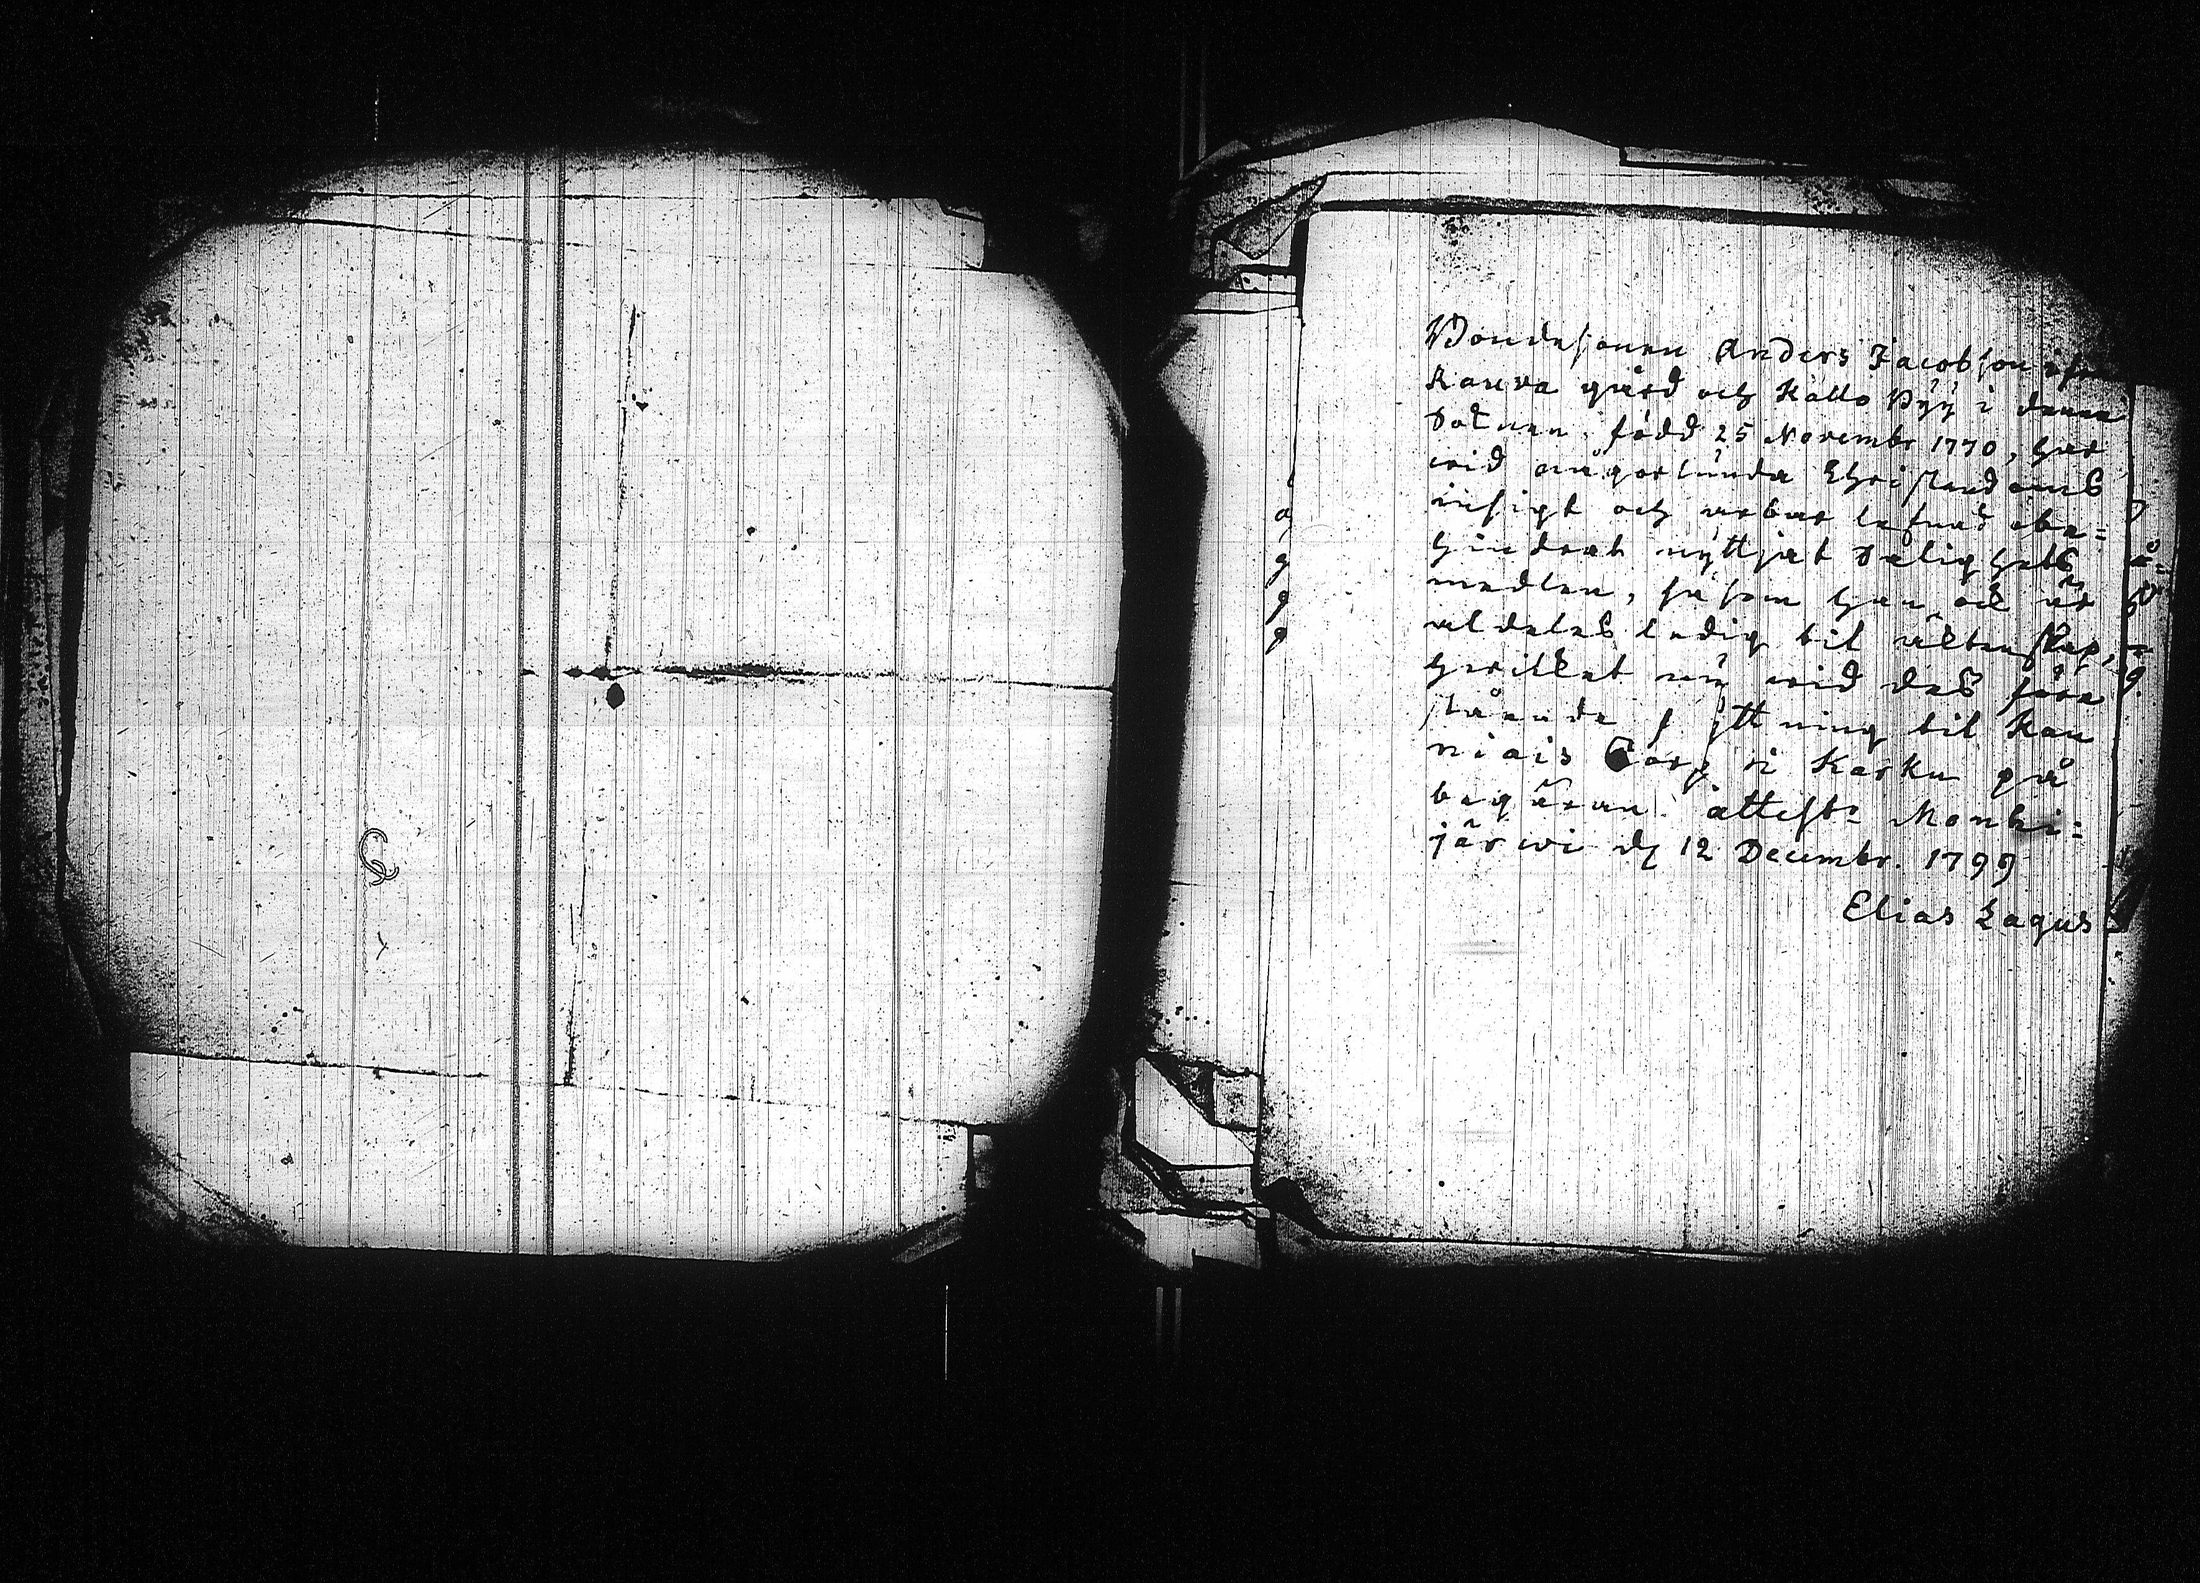 Bondesonen Anders Jacobsson ifrån
Kaura gård och Kallo Byÿ i denna
Soknen, född 25 Novembr 1770, har
wid någorlunda Christendoms
insigt och ärbar lefnad obe=
hindrat nÿttjat Salighets
medlen, så som han ock är
aldeles ledig til ächtenskap,
hwilket nu wid des före
stående flÿttning til Kau
niais Torp i Karku på
begäran attest: Mouhi=
järwi d 12 Decembr. 1799
Elias Lagus